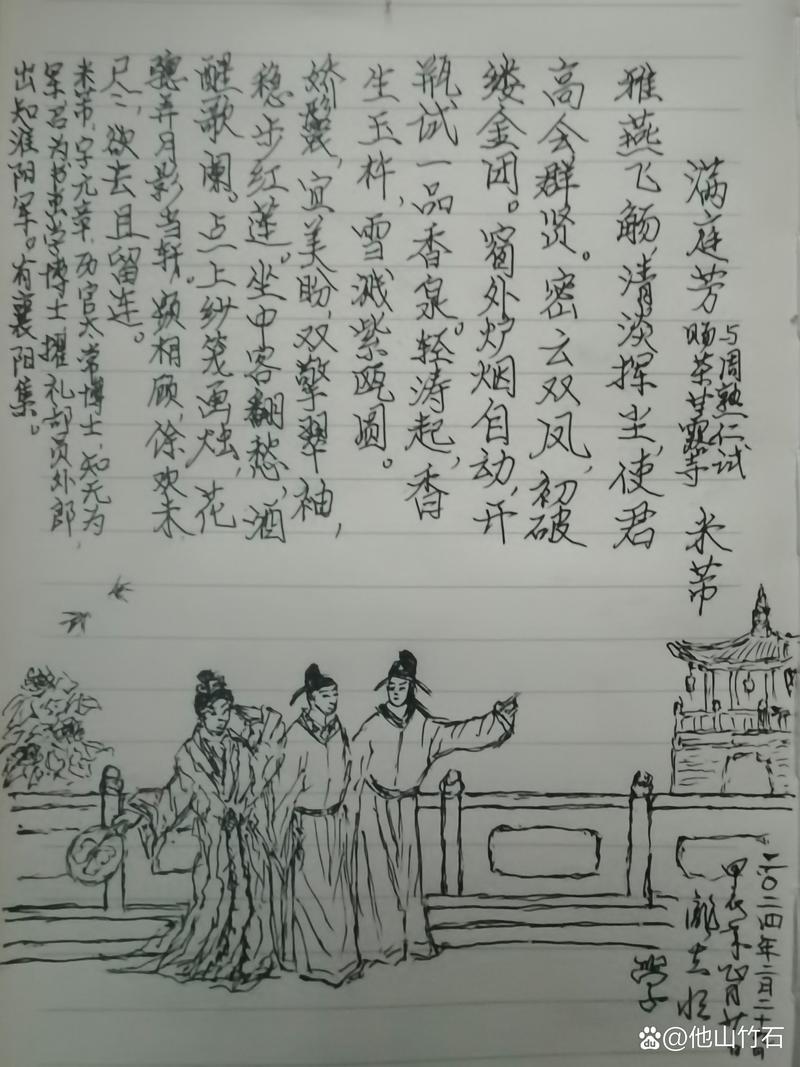 满庭芳 与周熟仁试
赐茶甘露寺 米芾
雅燕飞觞,清淡挥尘,使君
高会群贤。密云双凤,初破
缕金团。窗外炉烟自动,开
瓶试一品香泉。轻涛起,香
生玉杵,雪溅紫瓯圆。
娇鬟,宜美盼,双擎翠袖,
稳步红莲。坐中客翻愁,酒
醒歌阑。点上纱笼画烛,花
骢弄月影当轩。频相顾,馀欢未
尽,欲去且留连。
米芾,字元章,历官太常博士,知无为
军召为书画学博士,擢礼部员外郎,
出知淮阳军。有襄阳集。
二〇二四年二月二十九日
甲辰年正月廿日
学
@他山竹石